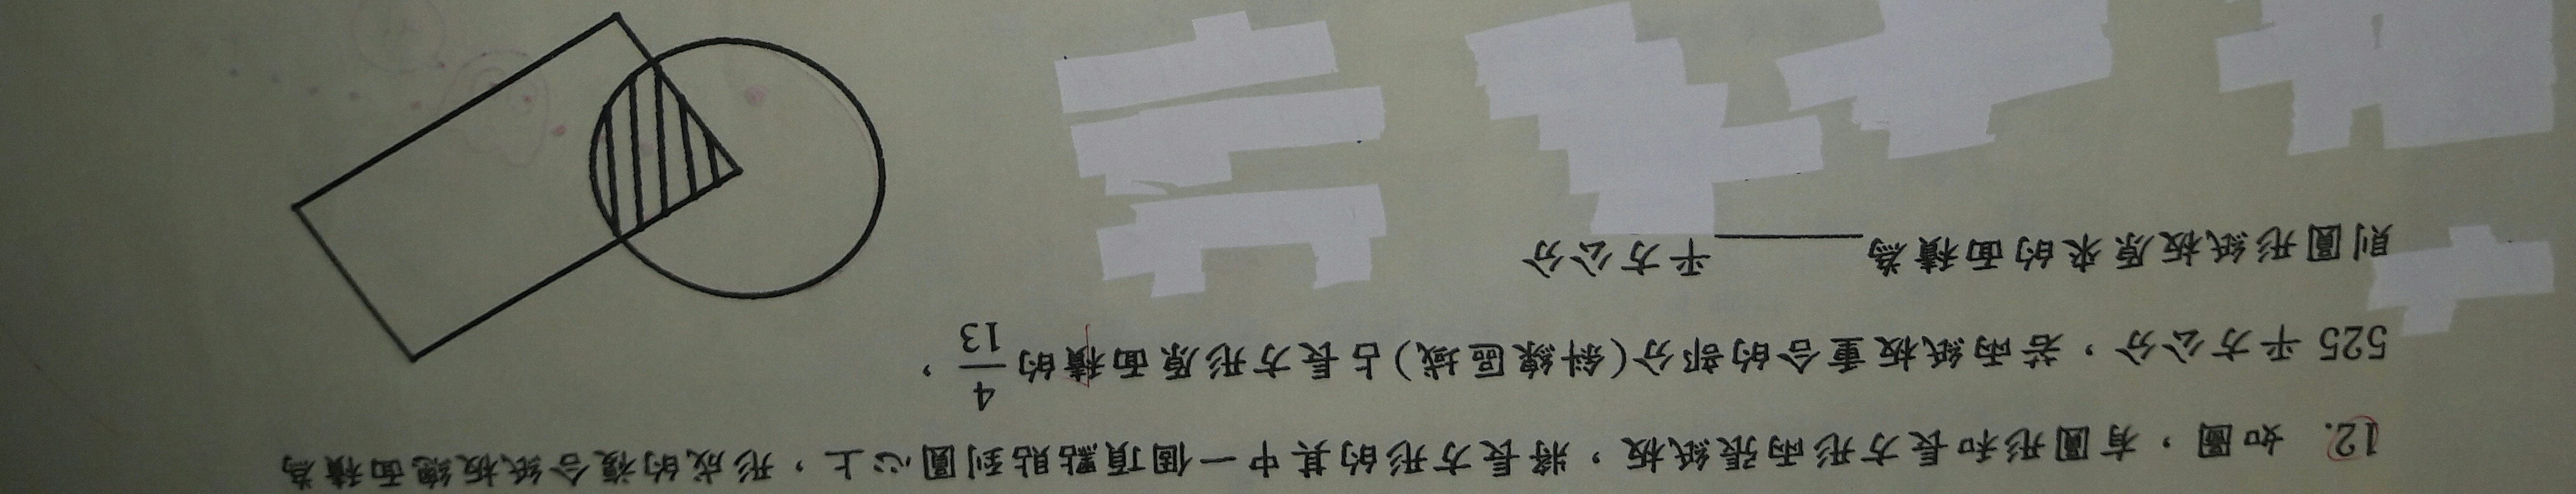 12. 如圖，有圓形和長方形兩張紙板，將長方形的其中一個頂點貼到圓心上，形成的複合紙板總面積為
525 平方公分，若兩紙板重合的部分(斜線區域)占長方形原面積的 4/13，
則圓形紙板原來的面積為______平方公分